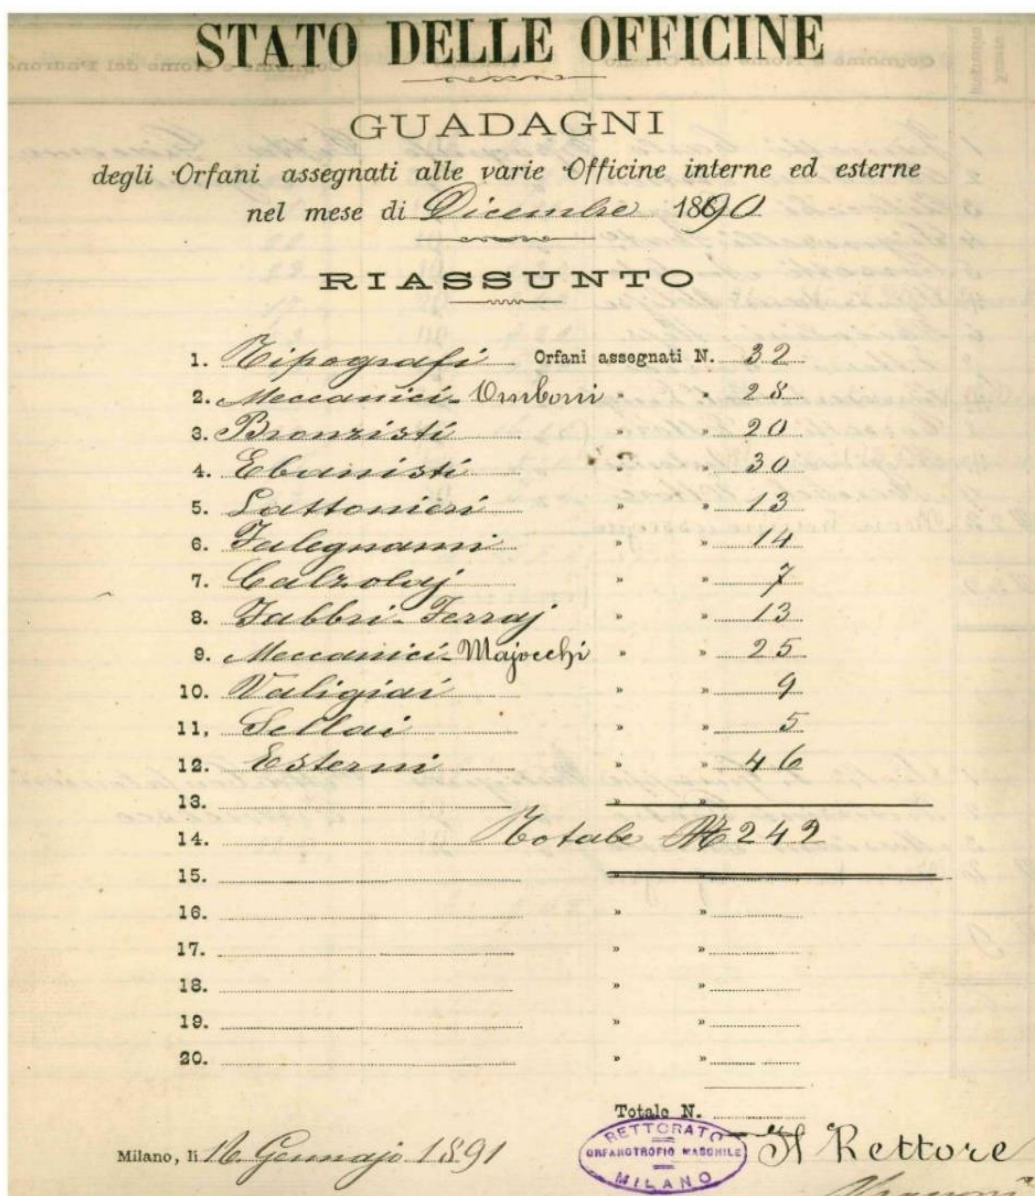 STATO DELLE OFFICINE
GUADAGNI
degli Orfani assegnati alle varie Officine interne ed esterne
nel mese di Dicembre 1890
RIASSUNTO
1. Tipografi Orfani assegnati N. 32
2. Meccanici - Omboni » » 28
3. Bronzisti » 20
4. Ebanisti » » 30
5. Lattonieri » » 13
6. Falegnami » » 14
7. Calzolaj » » 7
8. Fabbri - Ferraj » » 13
9. Meccanici - Majocchi » » 25
10. Valigiai » » 9
11. Sellai » » 5
12. Esterni » » 46
13. » »
14. Totale N 242
15. » »
16. » »
17. » »
18. » »
19. » »
20. » »
Totale N.
Milano, li Gennajo 1891
RETTORATO
ORFANOTROFIO MASCHILE
MILANO
Il Rettore